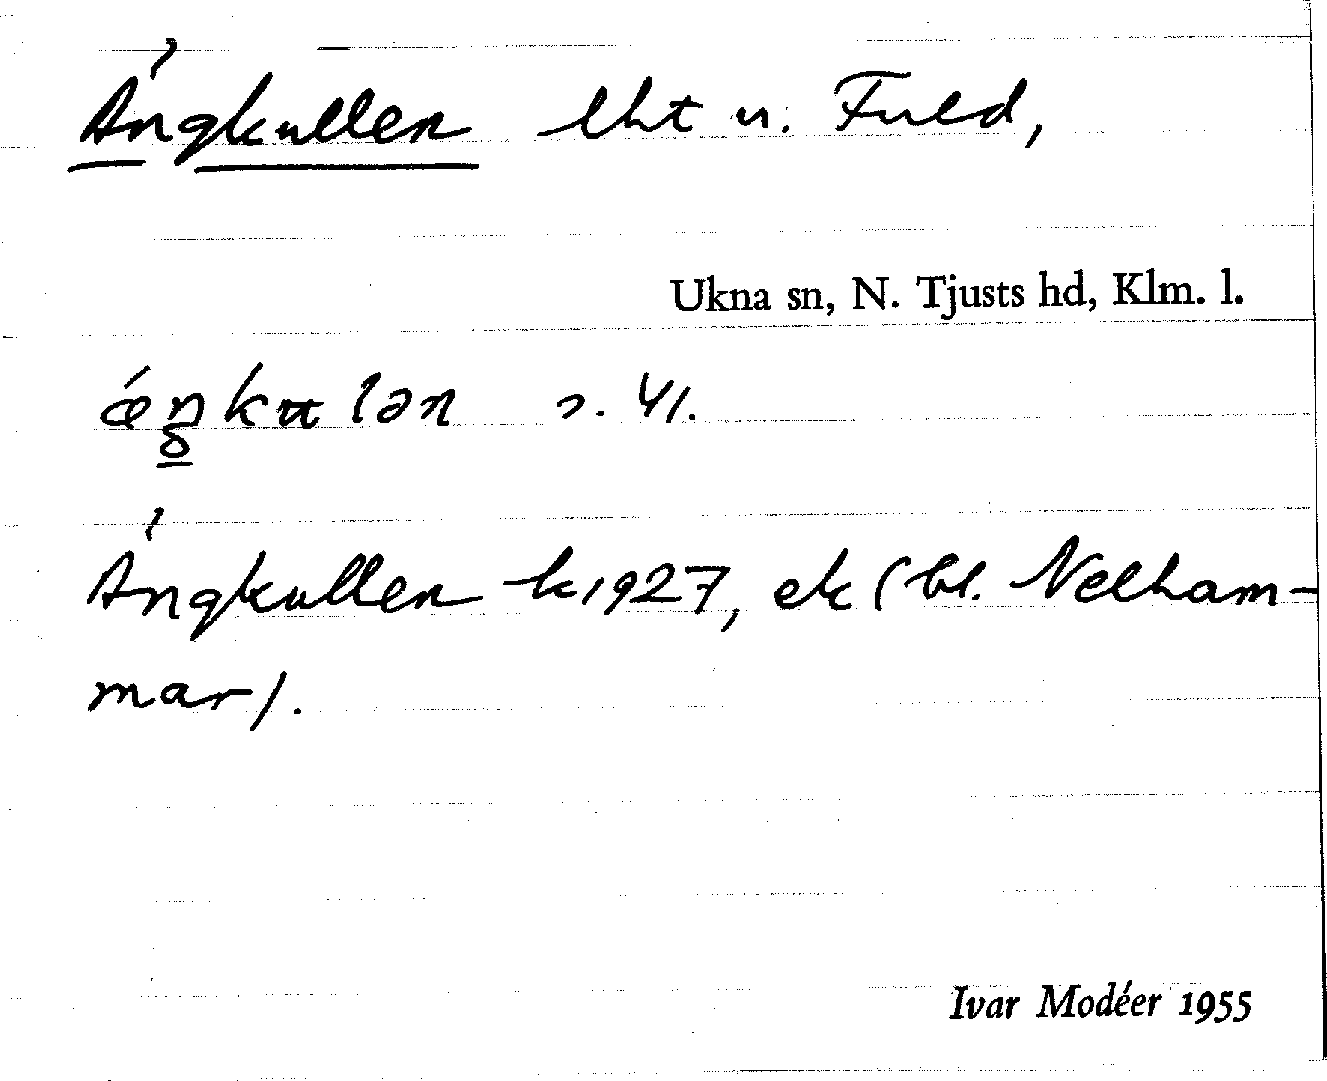 Ängkullen lht u. Fuld,
Ukna sn, N. Tjusts hd, Klm. l.
s. 41.
Ängkullen k 1927, ek (bl. Nelham-
mar).
Ivar Modéer 1955